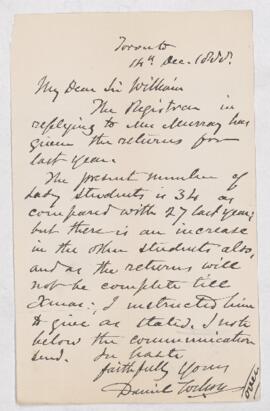 Toronto
14th Dec. 1888.
My Dear Sir William
The Registrar in
replying to Mr Murray has
given the returns for
last year.
The present number of
Lady students is 34 as
compared with 27 last year;
but there is an increase
in the other students also,
and as the returns will
not be complete till
Xmas; I instructed him
to give as stated. I note
below the communication
send. In haste
faithfully yours
Daniel Wilson
over